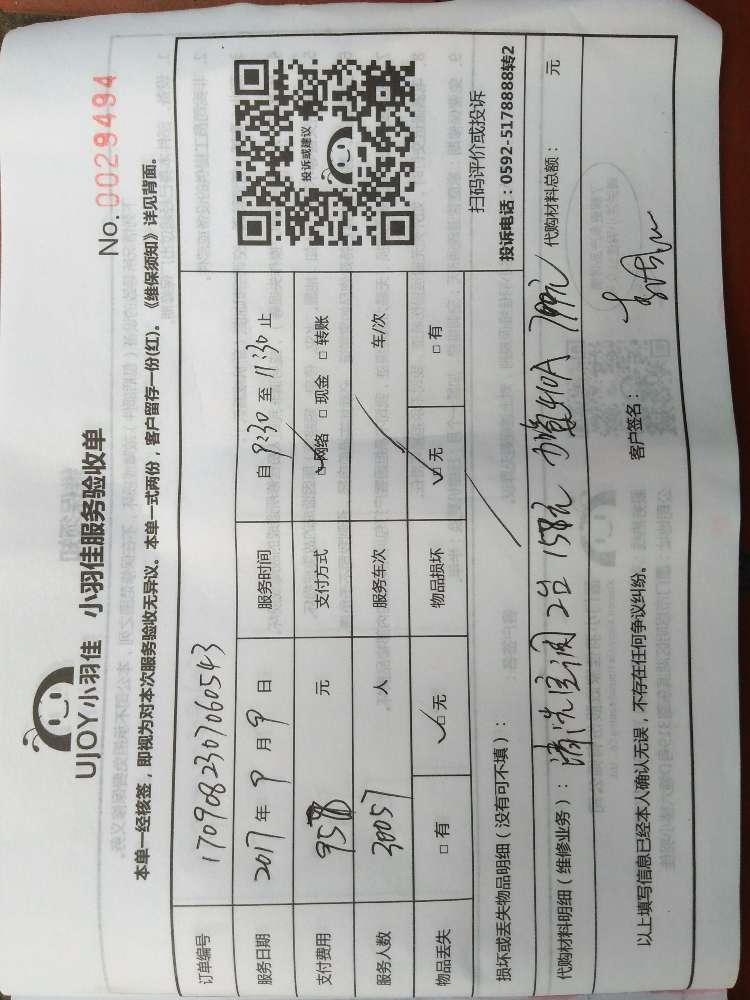 UJOY小羽佳 小羽佳服务验收单
No. 0029494
本单一经核签，即视为对本次服务验收无异议。本单一式两份，客户留存一份(红)。《维保须知》详见背面。
订单编号 1709082307060543
服务日期 2017 年 9 月 9 日 服务时间 自 9:30 至 11:30 止
支付费用 958 元 支付方式 □ 网络 □ 现金 □ 转账
服务人数 30057 人 服务车次 车/次
物品丢失 □ 有 □ 无 物品损坏 □ 无 □ 有
投诉或建议
扫码评价或投诉
投诉电话：0592-5178888转2
损坏或丢失物品明细（没有可不填）：
代购材料明细（维修业务）：清洗空调 2台 158元 410A 元 代购材料总额： 元
以上填写信息已经本人确认无误，不存在任何争议纠纷。 客户签名：